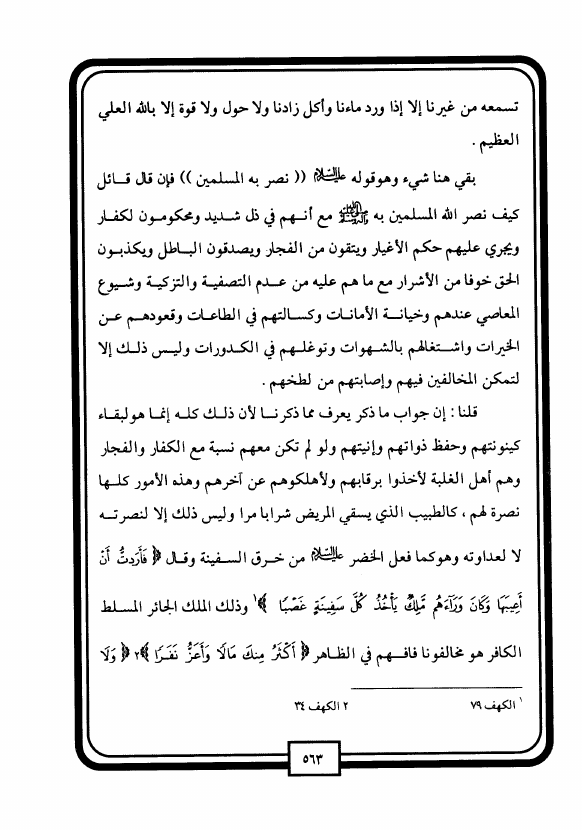 تسمعه من غيرنا إلا إذا ورد ماءنا وأكل زادنا ولا حول ولا قوة إلا بالله العلي
العظيم .
بقي هنا شيء وهوقوله عليه السلام (( نصر به المسلمين )) فإن قال قائل
كيف نصر الله المسلمين به صلى الله عليه وآله مع أنهم في ذل شديد ومحكومون لكفار
ويجري عليهم حكم الأغيار ويتقون من الفجار ويصدقون الباطل ويكذبون
الحق خوفا من الأشرار مع ما هم عليه من عدم التصفية والتزكية وشيوع
المعاصي عندهم وخيانة الأمانات وكسالتهم في الطاعات وقعودهم عن
الخيرات واشتغالهم بالشهوات وتوغلهم في الكدورات وليس ذلك إلا
لتمكن المخالفين فيهم وإصابتهم من لطخهم .
قلنا : إن جواب ما ذكر يعرف مما ذكرنا لأن ذلك كله إنما هولبقاء
كينونتهم وحفظ ذواتهم وإنيتهم ولو لم تكن معهم نسبة مع الكفار والفجار
وهم أهل الغلبة لأخذوا برقابهم ولأهلكوهم عن آخرهم وهذه الأمور كلها
نصرة لهم ، كالطبيب الذي يسقي المريض شرابا مرا وليس ذلك إلا لنصرته
لا لعداوته وهوكما فعل الخضر عليه السلام من خرق السفينة وقال ﴿ فَأَرَدتُّ أَنْ
أَعِيبَهَا وَكَانَ وَرَآءَهُم مَّلِكٌ يَأْخُذُ كُلَّ سَفِينَةٍ غَصْبًا ﴾١ وذلك الملك الجائر المسلط
الكافر هو مخالفونا فافهم في الظاهر ﴿ أَكْثَرُ مِنكَ مَالًا وَأَعَزُّ نَفَرًا ﴾٢ ﴿ وَلَا
١ الكهف ٧٩ ٢ الكهف ٣٤
٥٦٣